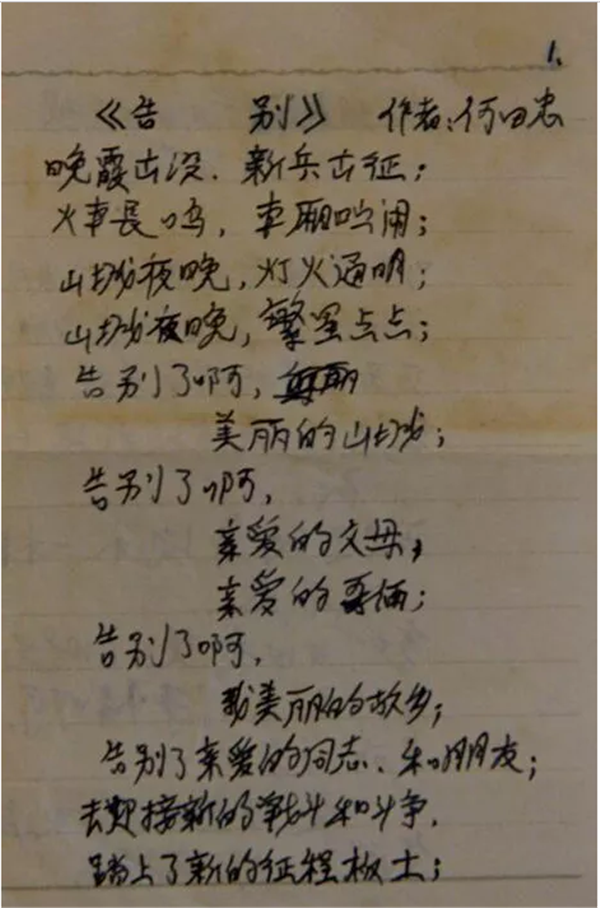 1.
《告 别》 作者:何田忠
晚霞出没. 新兵出征;
火車長鸣, 車厢吵闹;
山城夜晚,灯火通明;
山城夜晚,繁星点点;
告别了啊,
美丽的山城;
告别了啊,
亲爱的父母,
亲爱的哥俩;
告别了啊,
我美丽的故乡;
告别了亲爱的同志、和朋友;
去迎接新的战斗和斗争.
踏上了新的征程板土;